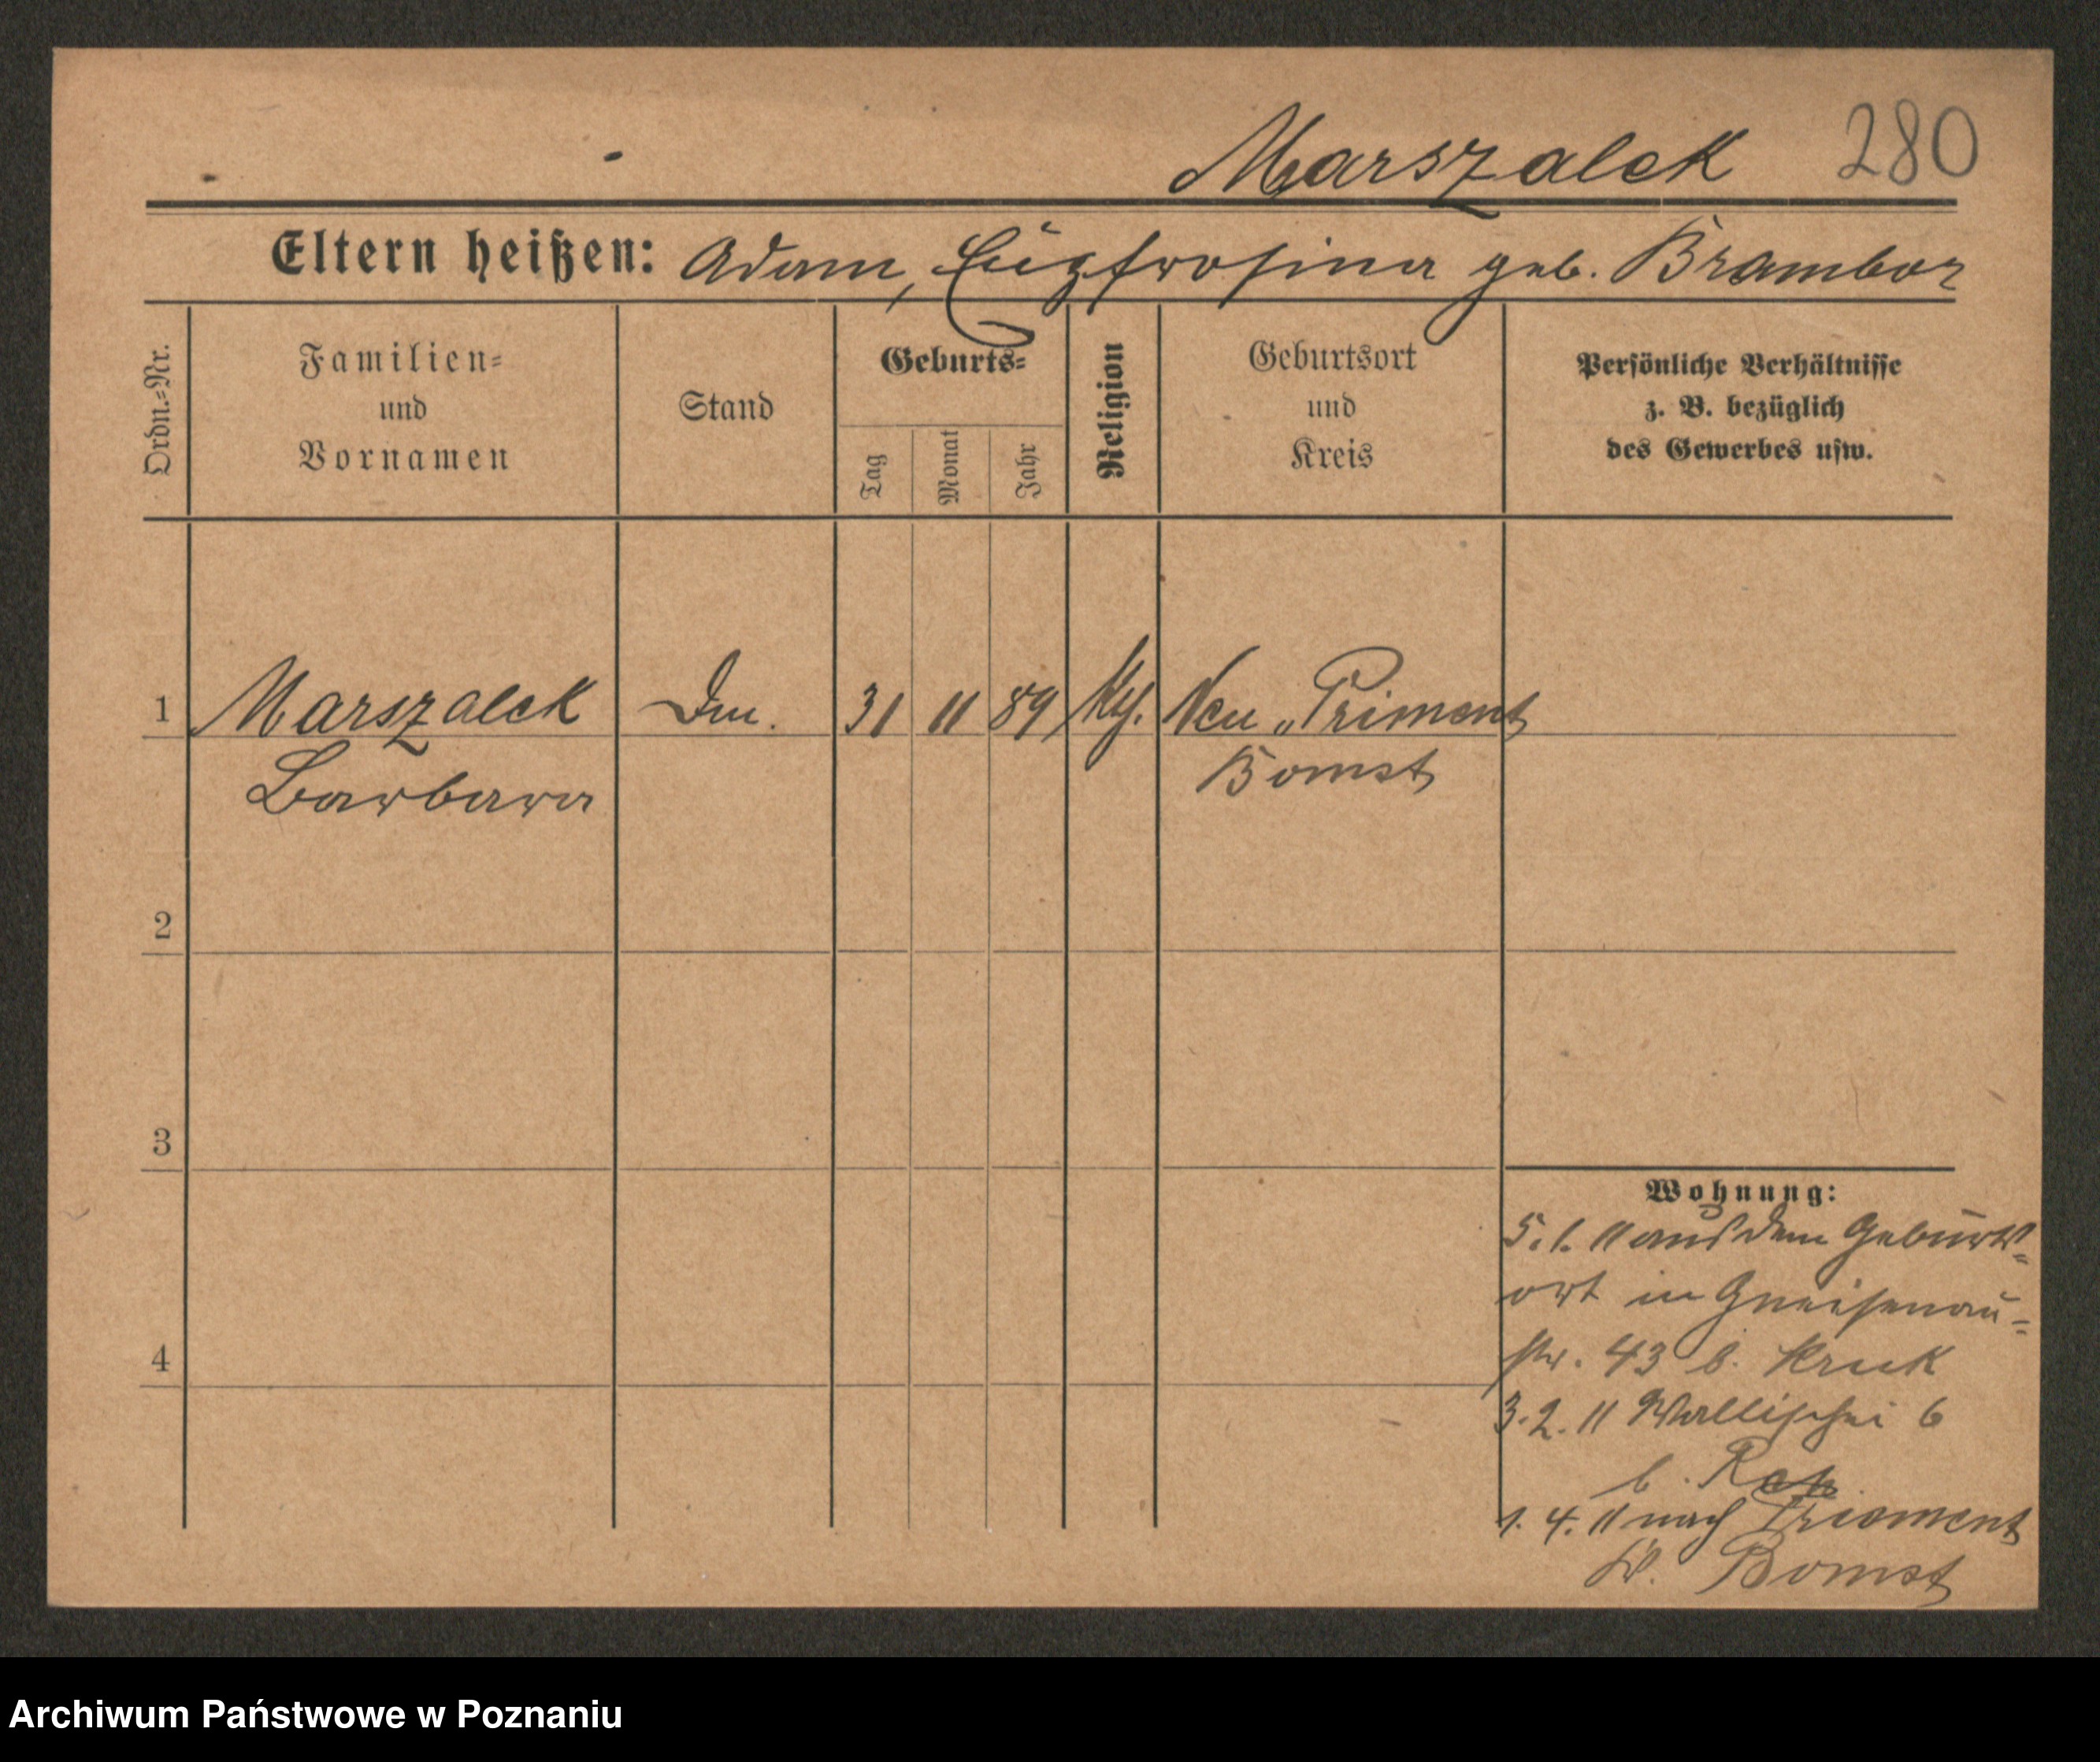 Marszalek 280
Eltern heißen: Adam, Eugfrosina geb. Brambor
Ordn.=Nr.
Familien=
und
Vornamen
Stand
Geburts=
Tag
Monat
Jahr
Religion
Geburtsort
und
Kreis
Persönliche Verhältnisse
z. B. bezüglich
des Gewerbes usw.
1 Marszalek 31 11 89 Neu „Priment
Barbara Bomst
2
3
4
Wohnung:
5.1.11 aus dem Geburts=
ort in Gneisenau=
str. 43 b. Kruk
3.2.11 Wallischei 6
b.
1.4.11 nach Priment
Bomst
Archiwum Państwowe w Poznaniu